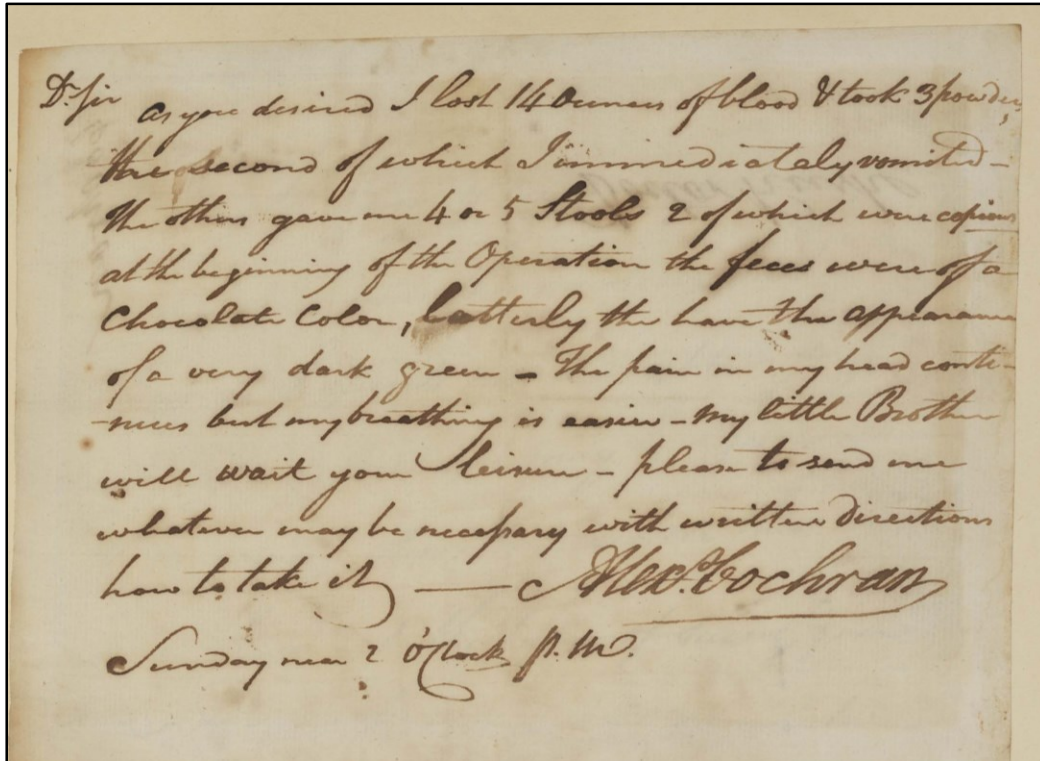 Dr. Sir as you desired I lost 14 Ounces of blood & took 3 powders,
the second of which I immediately vomited –
the others gave me 4 or 5 Stools 2 of which were copious
at the beginning of the Operation the feces were of a
Chocolate Color, latterly the have the appearance
of a very dark green – The pain in my head conti-
-nues but my breathing is easier – My little Brother
will wait your leisure – please to send me
whatever may be necessary with written directions
how to take it — Alexr. Cochran
Sunday near 2 o'Clock P.M.